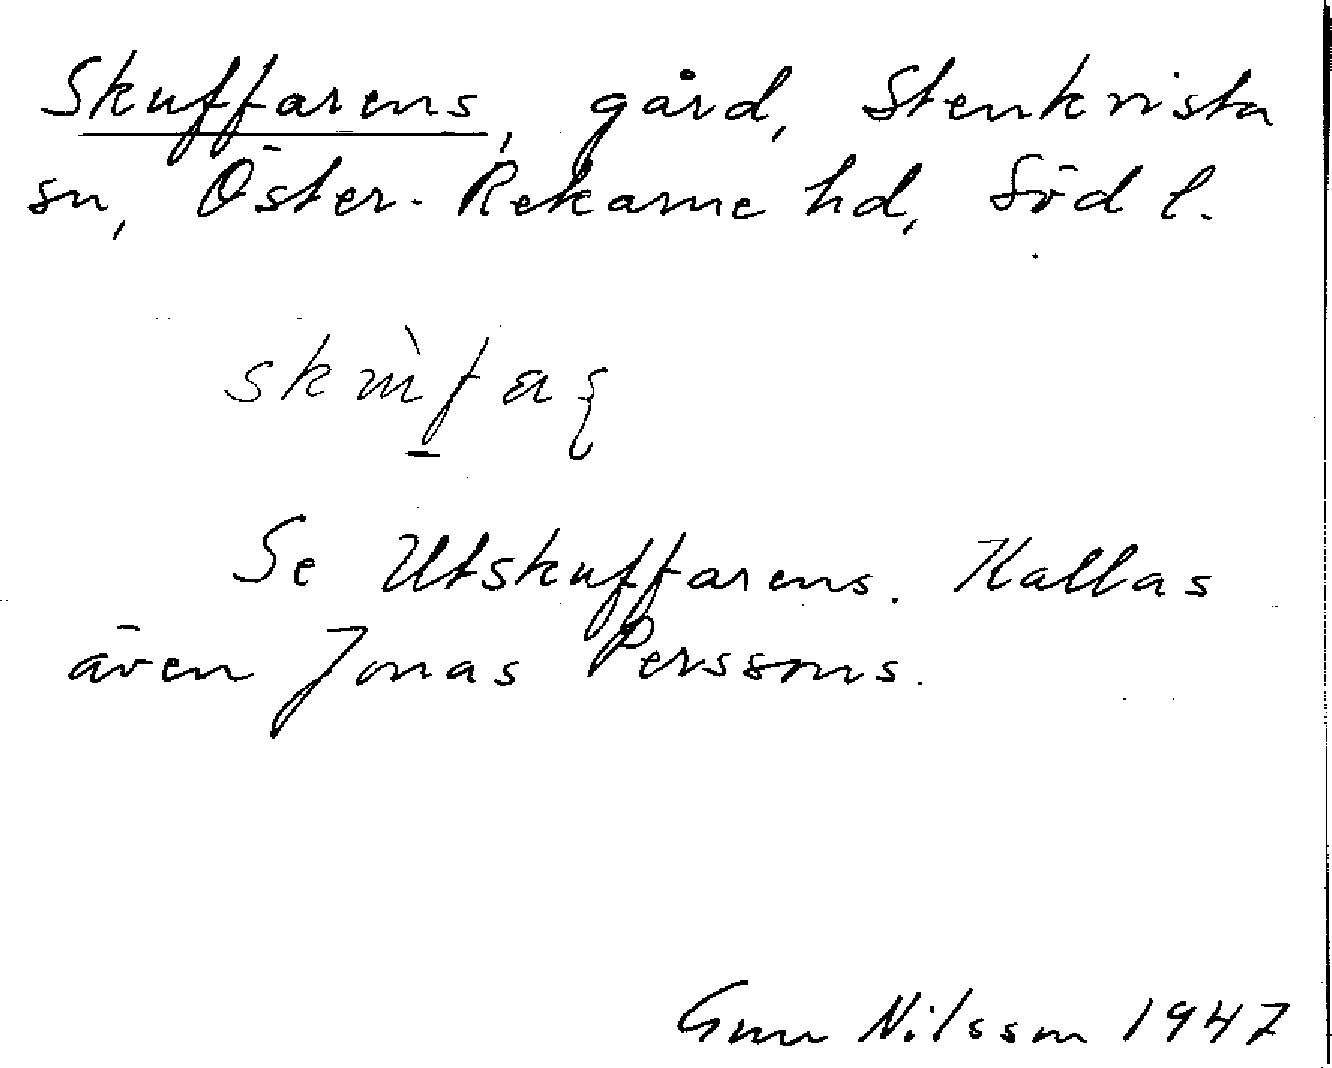 Skuffarens, gård, Stenkvista
sn, Öster-Rekarne hd, Söd l.
Se Utskuffarens. Kallas
även Jonas Perssons.
Gun Nilsson 1947